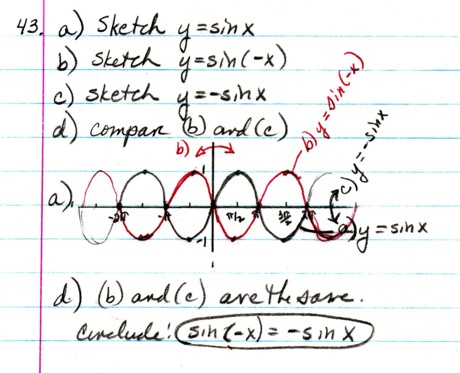 43. a) Sketch y = sin x
b) Sketch y = sin(-x)
c) sketch y = -sin x
d) compare (b) and (c)
b)
b) y = sin(-x)
c) y = -sin x
a).
1
-2π -π π/2 π 3π/2 2π
-1
a) y = sin x
d) (b) and (c) are the same.
Conclude: sin(-x) = -sin x